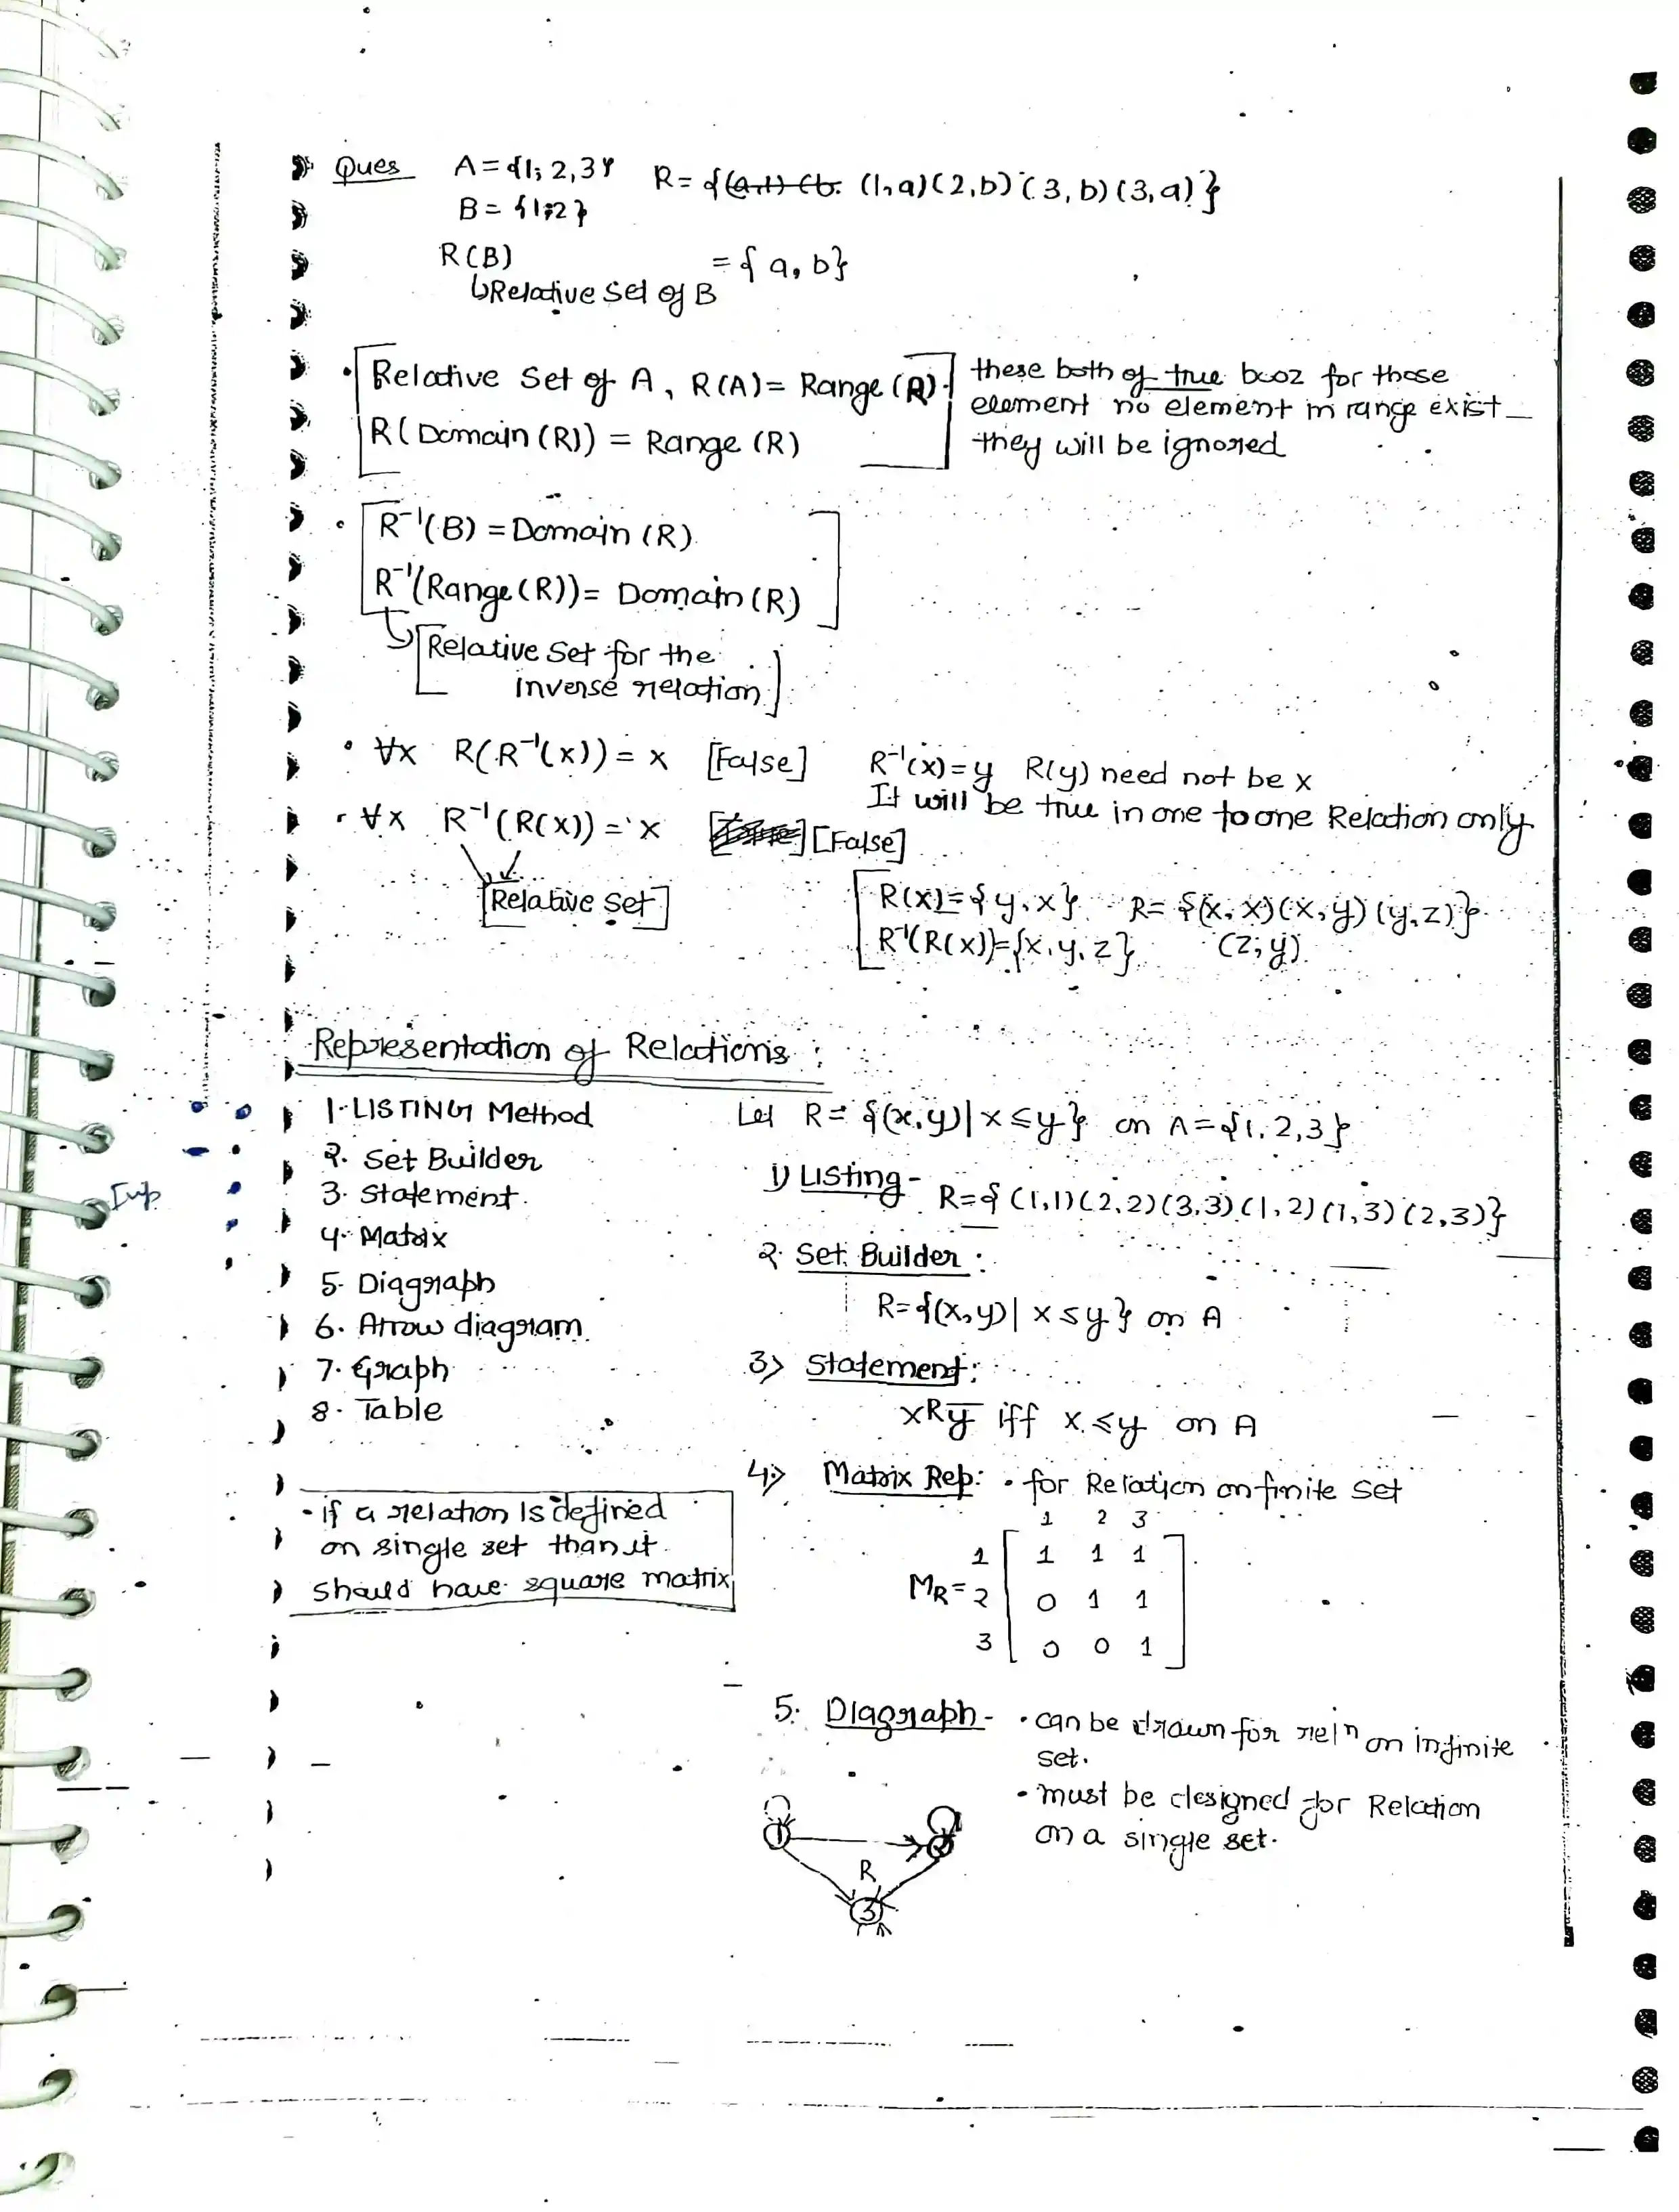 Ques A = {1, 2, 3} R = { (1, a) (2, b) (3, b) (3, a) }
B = {1, 2}
R(B) = { a, b}
↳Relative Set of B
• Relative Set of A, R(A) = Range (R).
R( Domain (R)) = Range (R)
these both of true bcoz for those
element no element in range exist
they will be ignored
• R⁻¹(B) = Domain (R).
R⁻¹(Range (R)) = Domain (R)
↳[Relative Set for the
inverse relation]
• ∀x R( R⁻¹(x)) = x [False] R⁻¹(x) = y R(y) need not be x
It will be true in one to one Relation only
• ∀x R⁻¹ ( R(x)) = x [False]
[Relative Set]
R(x) = { y, x } R = { (x, x) (x, y) (y, z) }
R⁻¹(R(x)) = {x, y, z } (z, y)
Representation of Relations :
1. LISTING Method
2. Set Builder
3. Statement.
Imp
4. Matrix
5. Diagraph
6. Arrow diagram.
7. Graph
8. Table
• if a relation Is defined
on single set than it
should have square matrix
Let R = {(x, y) | x ≤ y } on A = {1, 2, 3 }
1) Listing - R = { (1,1) (2,2) (3,3) (1,2) (1,3) (2,3) }
2. Set Builder :
R = {(x, y) | x ≤ y } on A
3> Statement:
xRy iff x ≤ y on A
4> Matrix Rep: • for Relation on finite set
1 2 3
1 1 1 1
MR = 2 0 1 1
3 0 0 1
5. Diagraph - • can be drawn for relⁿ on infinite
set.
• must be designed for Relation
on a single set.
1 2
R
3